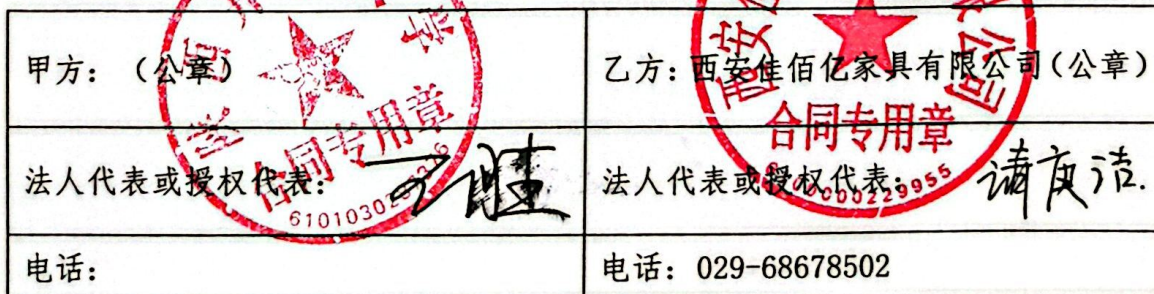 甲方：（公章）
乙方：西安佳佰亿家具有限公司（公章）
合同专用章
合同专用章
法人代表或授权代表：
法人代表或授权代表：
电话：
电话：029-68678502